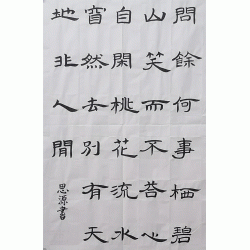 問餘何事栖碧
山笑而不荅心
自閑桃花流水
窅然去別有天
地非人間
思源書